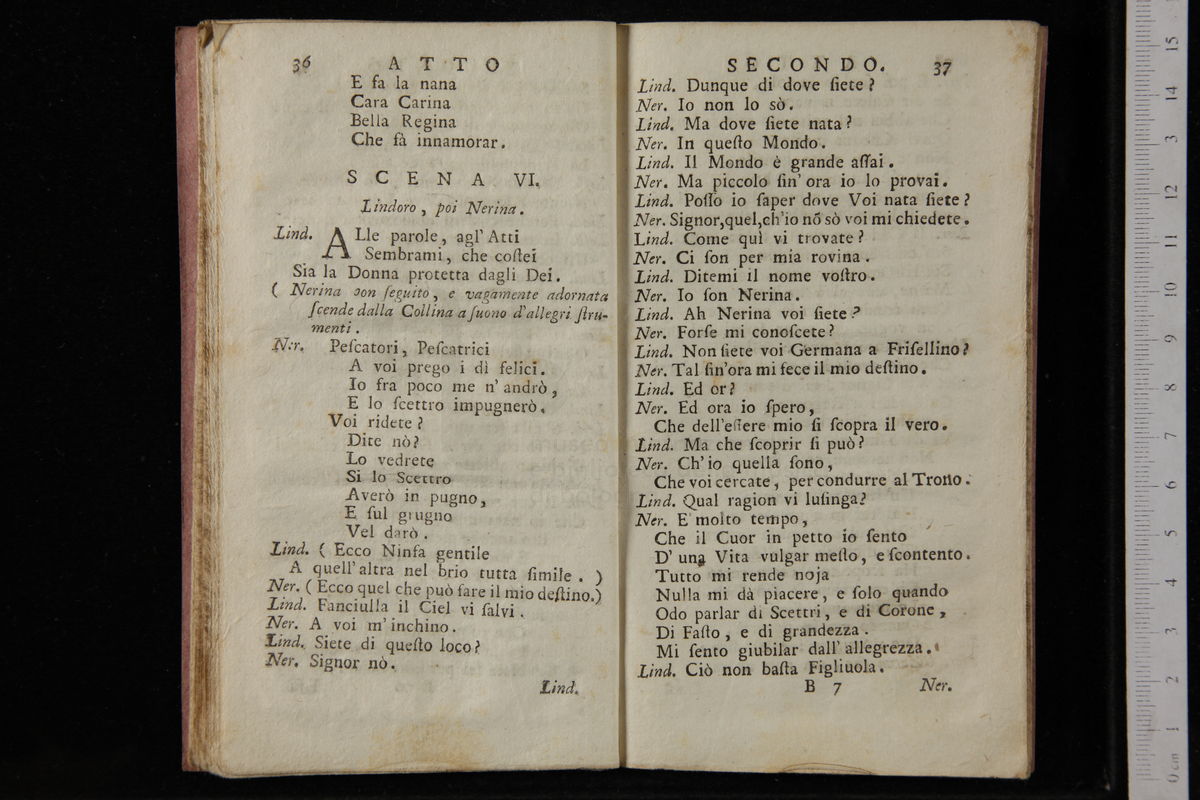 36 ATTO
E fa la nana
Cara Carina
Bella Regina
Che fà innamorar.
SCENA VI.
Lindoro, poi Nerina.
Lind. ALle parole, agl' Atti
Sembrami, che coſtei
Sia la Donna protetta dagli Dei.
( Nerina con ſeguito, e vagamente adornata
ſcende dalla Collina a ſuono d'allegri ſtru-
menti.
Ner. Peſcatori, Peſcatrici
A voi prego i dì felici.
Io fra poco me n' andrò,
E lo ſcettro impugnerò.
Voi ridete?
Dite nò?
Lo vedrete
Si lo Scettro
Averò in pugno,
E ſul grugno
Vel darò.
Lind. ( Ecco Ninfa gentile
A quell' altra nel brio tutta ſimile. )
Ner. ( Ecco quel che può fare il mio deſtino.)
Lind. Fanciulla il Ciel vi ſalvi.
Ner. A voi m' inchino.
Lind. Siete di queſto loco?
Ner. Signor nò.
Lind.
SECONDO. 37
Lind. Dunque di dove ſiete?
Ner. Io non lo sò.
Lind. Ma dove ſiete nata?
Ner. In queſto Mondo.
Lind. Il Mondo è grande aſſai.
Ner. Ma piccolo ſin' ora io lo provai.
Lind. Poſſo io ſaper dove Voi nata ſiete?
Ner. Signor,quel,ch'io nõ sò voi mi chiedete.
Lind. Come quì vi trovate?
Ner. Ci ſon per mia rovina.
Lind. Ditemi il nome voſtro.
Ner. Io ſon Nerina.
Lind. Ah Nerina voi ſiete?
Ner. Forſe mi conoſcete?
Lind. Non ſiete voi Germana a Friſellino?
Ner. Tal ſin'ora mi fece il mio deſtino.
Lind. Ed or?
Ner. Ed ora io ſpero,
Che dell'eſſere mio ſi ſcopra il vero.
Lind. Ma che ſcoprir ſi può?
Ner. Ch' io quella ſono,
Che voi cercate, per condurre al Trono.
Lind. Qual ragion vi luſinga?
Ner. E' molto tempo,
Che il Cuor in petto io ſento
D' una Vita vulgar meſto, e ſcontento.
Tutto mi rende noja
Nulla mi dà piacere, e ſolo quando
Odo parlar di Scettri, e di Corone,
Di Faſto, e di grandezza.
Mi ſento giubilar dall' allegrezza.
Lind. Ciò non baſta Figliuola.
B 7 Ner.
0 cm 1 2 3 4 5 6 7 8 9 10 11 12 13 14 15